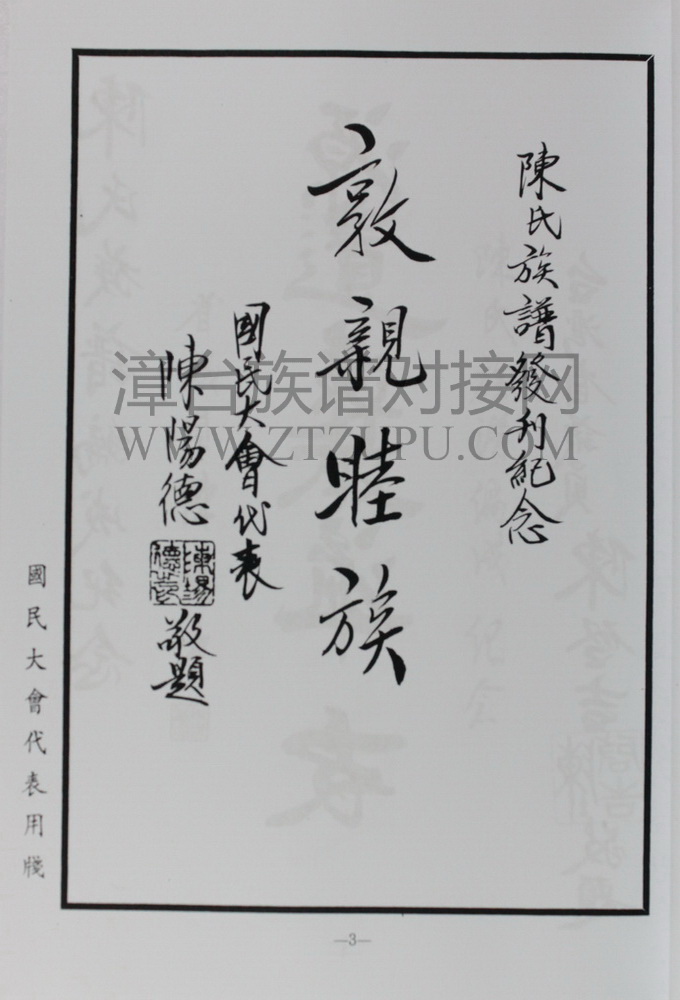 陳氏族譜發刊紀念
敦親睦族
國民大會代表
陳陽德
敬題
國民大會代表用牋
漳台族谱对接网
WWW.ZTZUPU.COM
—3—